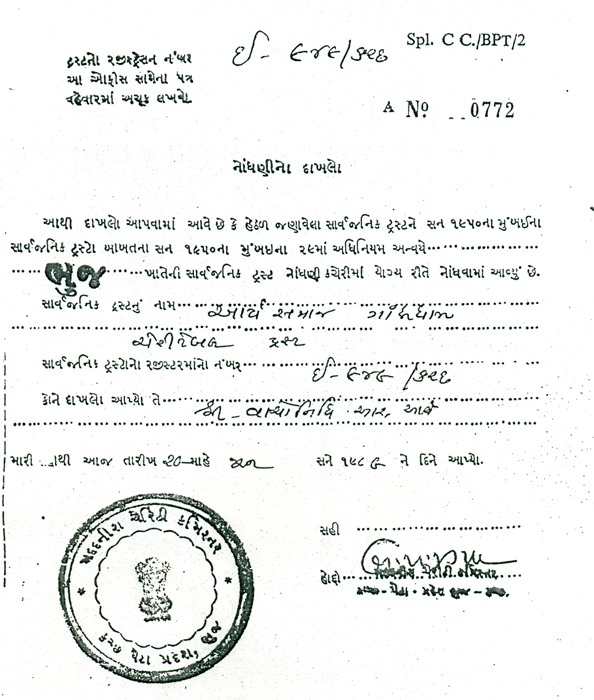 ટ્રસ્ટનો રજીસ્ટ્રેશન નંબર
આ ઓફીસ સાથેના પત્ર
વહેવારમાં અચૂક લખવો.
ઈ- ૯૪૯/કચ્છ
Spl. C C./BPT/2
A No 0772
નોંધણીનો દાખલો
આથી દાખલો આપવામાં આવે છે કે હેઠળ જણાવેલા સાર્વજનિક ટ્રસ્ટને સન ૧૯૫૦ના મુંબઇના
સાર્વજનિક ટ્રસ્ટો બાબતના સન ૧૯૫૦ના મુંબઇના ૨૯માં અધિનિયમ અન્વયે
ભુજ ખાતેની સાર્વજનિક ટ્રસ્ટ નોંધણી કચેરીમાં યોગ્ય રીતે નોંધવામાં આવ્યું છે.
સાર્વજનિક ટ્રસ્ટનું નામ આર્ય સમાજ ગાંધીધામ
ચેરીટેબલ ટ્રસ્ટ
સાર્વજનિક ટ્રસ્ટોના રજીસ્ટરમાંનો નંબર ઈ-૯૪૯/કચ્છ
કોને દાખલો આપ્યો તે શ્રી- વાચોનિધિ આર. આર્ય
મારી સહીથી આજ તારીખ ૨૦ માહે જુન સને ૧૯૮૯ ને દિને આપ્યો.
સહી
હોદ્દો મદદનીશ ચેરીટી કમિશ્નર
કચ્છ-પેટા-પ્રદેશ ભુજ-કચ્છ.
મદદનીશ ચેરિટી કમિશ્નર
કચ્છ પેટા પ્રદેશ, ભુજ